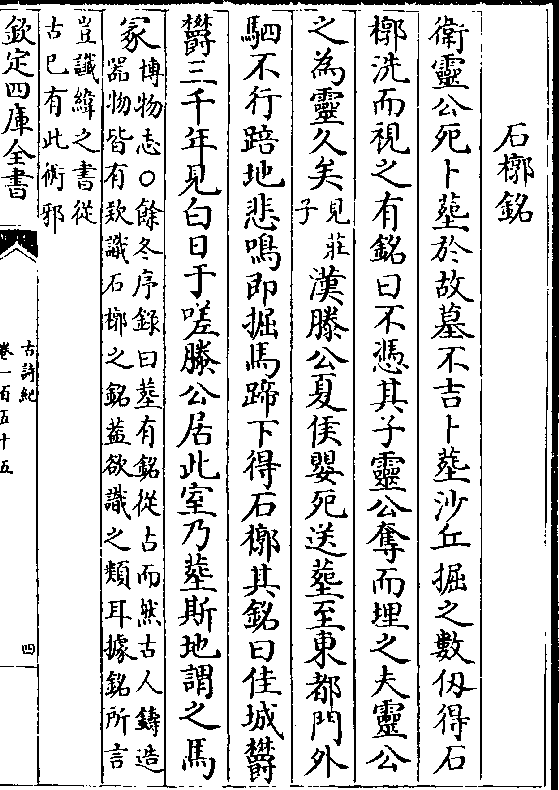 石槨銘
衛靈公死卜塟於故墓不吉卜塟沙丘掘之數仭得石
槨洗而視之有銘曰不憑其子靈公奪而埋之夫靈公
之為靈久矣見莊子漢滕公夏侯嬰死送塟至東都門外
駟不行踣地悲鳴即掘馬蹄下得石槨其銘曰佳城欝
欝三千年見白日于嗟滕公居此室乃塟斯地謂之馬
冢博物志○餘冬序録曰塟有銘從古而然古人鑄造
器物皆有欵識石槨之銘葢欲識之類耳據銘所言
豈讖緯之書從
古已有此術邪
欽定四庫全書
古詩紀
卷一百五十五
四